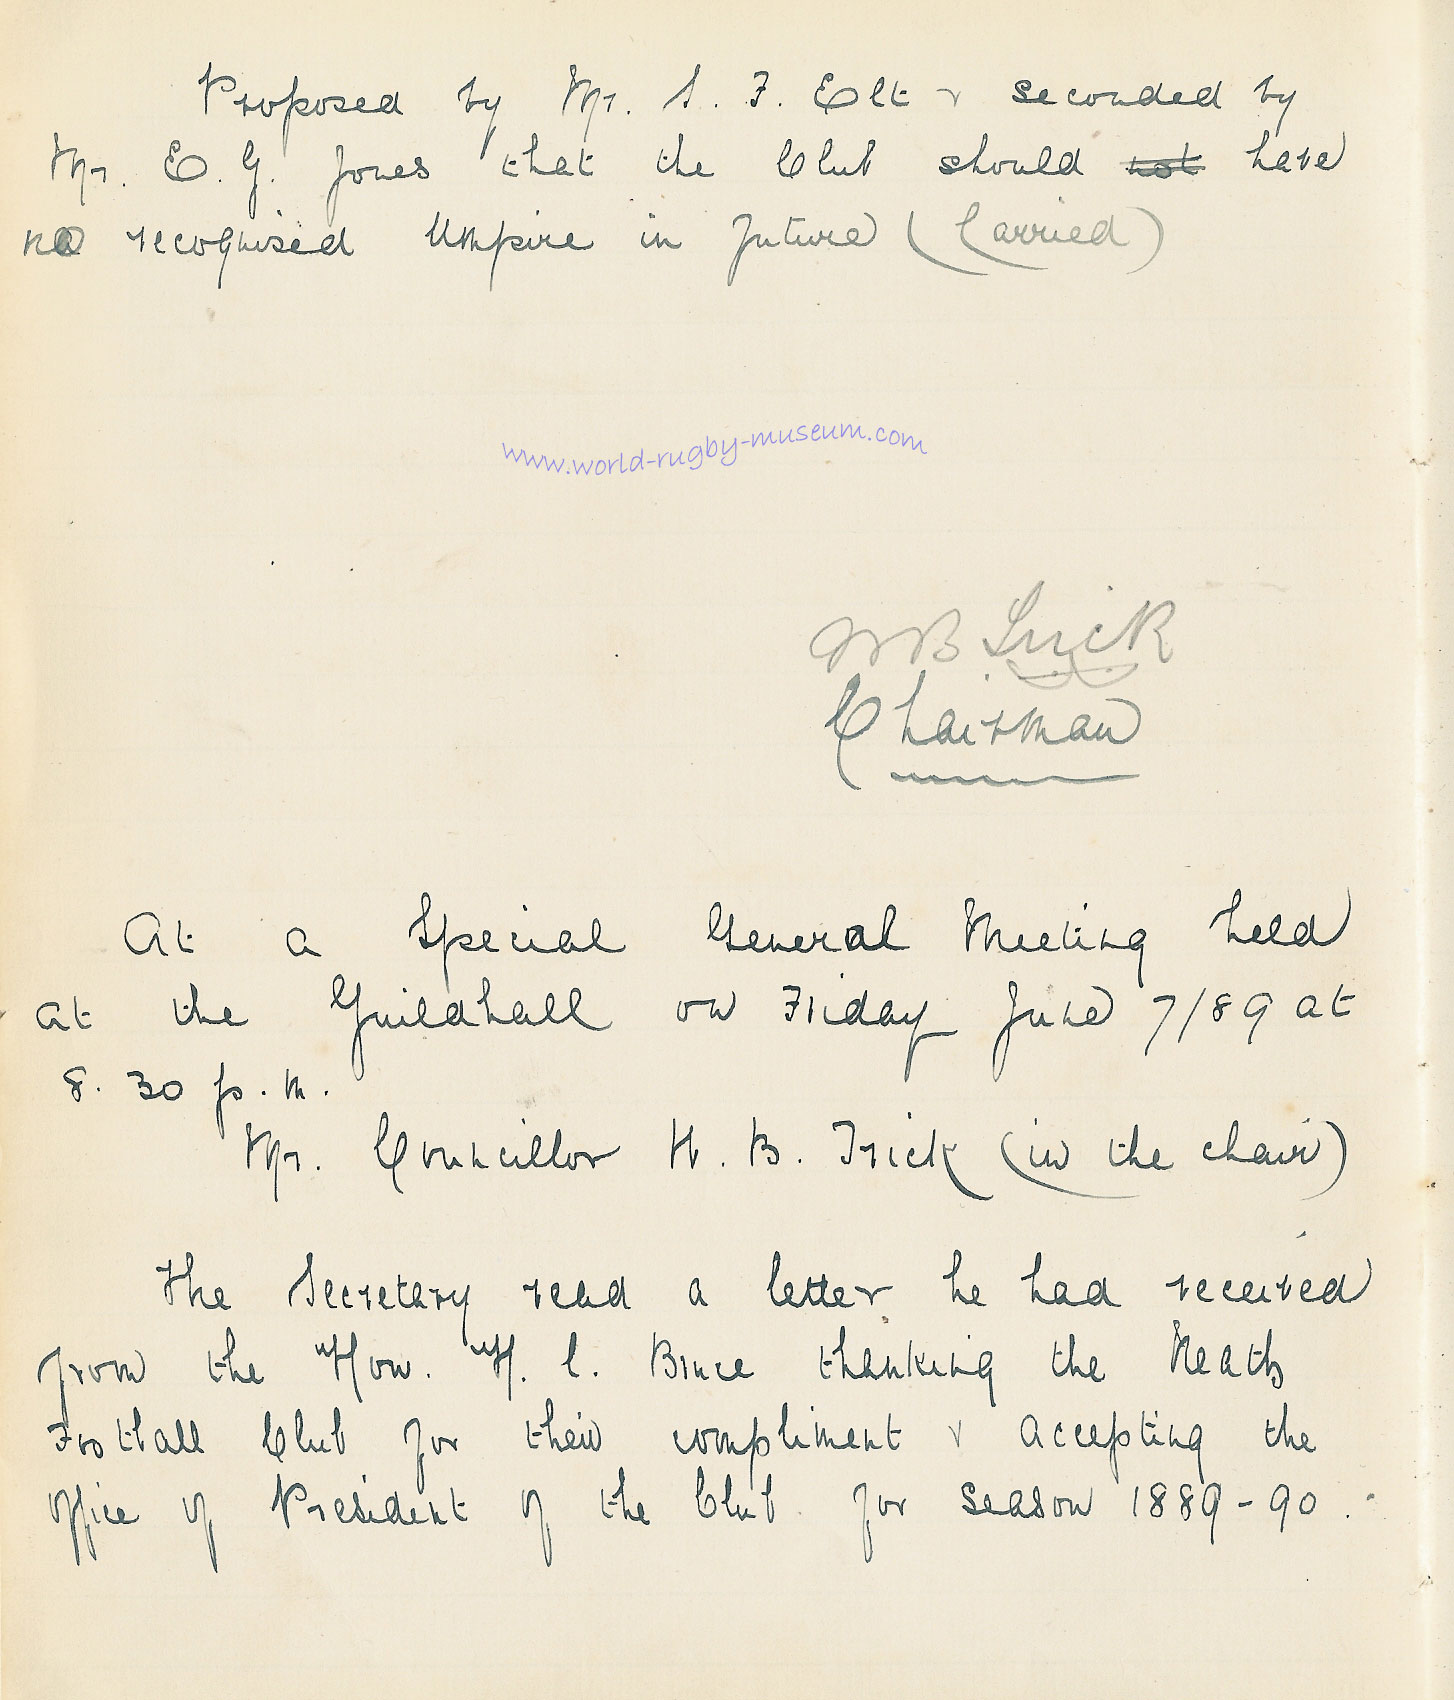 Proposed by Mr. S. F. Elt & seconded by
Mr. E. G. Jones that the Club should not have
no recognised Umpire in future (Carried)
www.world-rugby-museum.com
Chairman
At a Special General Meeting held
at the Guildhall on Friday June 7/89 at
8.30 p.m.
Mr. Councillor H. B. Trick (in the chair)
The Secretary read a letter he had received
from the "Hon. "H. C. Bruce thanking the Neath
Football Club for their compliment & accepting the
office of President of the Club for season 1889-90.